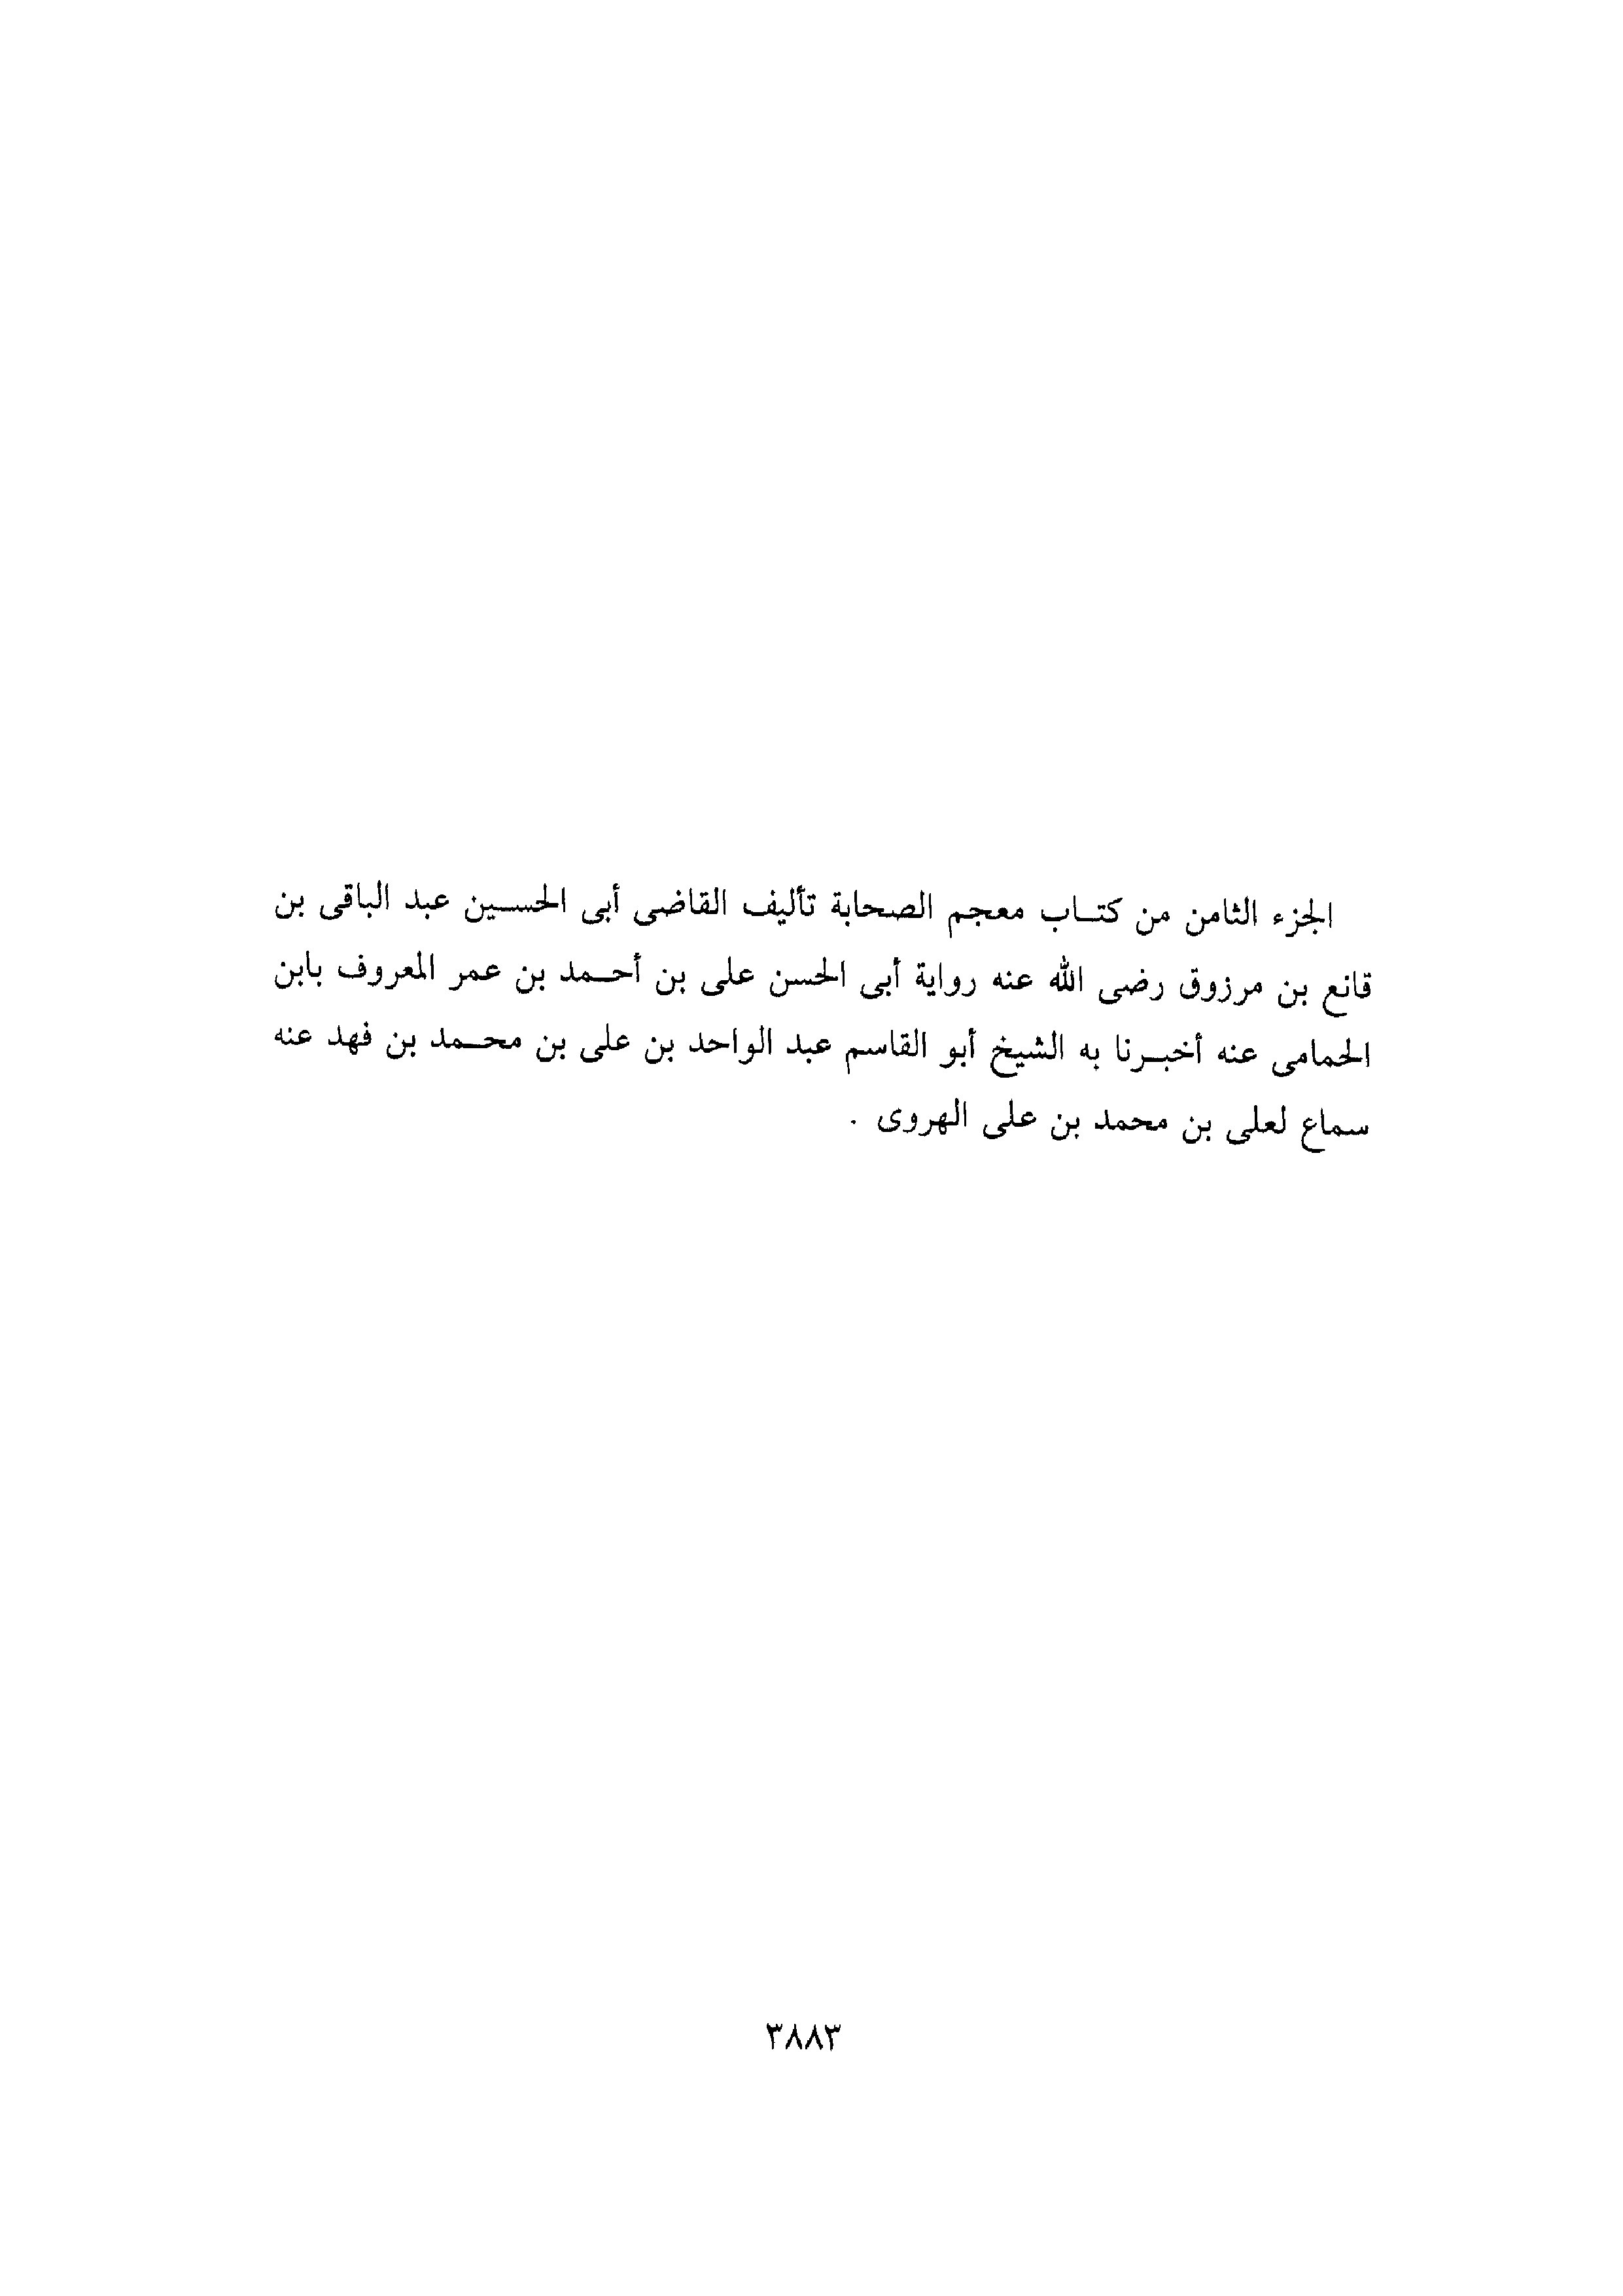 الجزء الثامن من كتـاب معجم الصحابة تأليف القاضى أبى الحسـين عبد الباقى بن
قانع بن مرزوق رضى الله عنه رواية أبى الحسن على بن أحـمد بن عمر المعروف بابن
الحمامى عنه أخبـرنا به الشيخ أبو القاسم عبد الواحد بن على بن محـمد بن فهد عنه
سماع لعلى بن محمد بن على الهروى .
٣٨٨٣